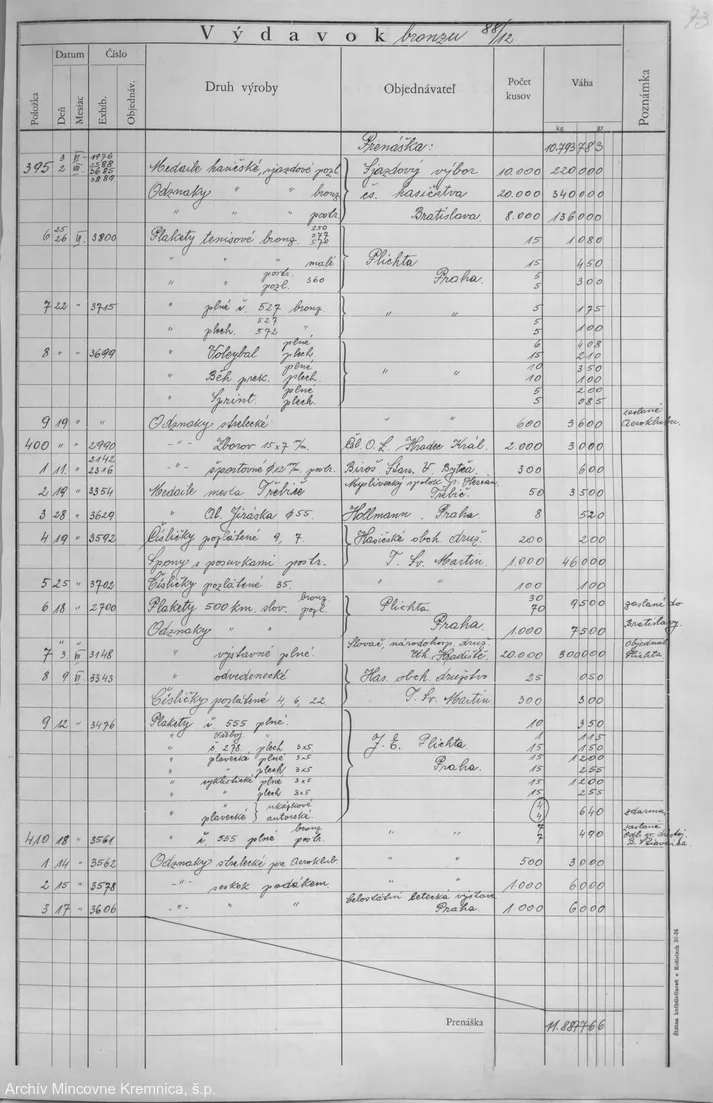 73
Výdavok bronzu 88/12
Položka Datum Deň Mesiac Číslo Exhib. Objednáv. Druh výroby Objednávateľ Počet kusov Váha kg gr Poznámka
Prenáška: 10.793 783
395 3 VI 1976
2 VII 2588 Medaile hasičské, sjazdové pozl. Sjazdový výbor 10.000 220 000
3685
3889 Odznaky " " bronz. čs. hasičstva 20.000 340 000
" " " postr. Bratislava 8.000 136 000
6 25 26 VI. 3800 Plakety tenisové bronz. 550 577 570 15 1 080
" " malé Plichta 15 450
" " postr. pozl. 360 Praha. 5 5 300
7 22 " 3715 " plné č. 527 bronz. " " 5 175
" plech. 527 572 " 5 5 100
8 " " 3699 " Voleybal plné plech. 6 15 408 210
" Běh prek. plné plech. " " 10 10 350 100
" Sprint. plné plech. 5 5 200 085
9 19 " " Odznaky strelecké " " 600 3 600 zaslané Aeroklubu.
400 " " 2990 -"- Zborov 15x7 m/m. Čsl. O. L. Hradec Král. 2.000 3 000
1 11. " 2142 2316 -"- športovné ø 12 m/m. postr. Biroš Štan. V. Bytča. 300 600
2 19 " 3354 Medaile mesta Třebíče Myslivecký spolok Třebíč 50 3 500
3 28 " 3629 " Al. Jiráska ø 55. Hollmann. Praha. 8 520
4 19 " 3592 Číslíčky pozlátené 9, 7. Hasičské obch. druž. 200 200
Spony s posuvkami postr. T. Sv. Martin. 1.000 46 000
5 25 " 3702 Číslíčky pozlátené 35. " " 100 100
6 18 " 2700 Plakety 500 km. slov. bronz. pozl. Plichta 30 70 9 500 zaslané do
Odznaky " " Praha. 1.000 7 500 Bratislavy.
7 3. VI 3148 " výstavné plné. Slovač. národohosp. druž. Uh. Hradiště. 20.000 300 000 objednal Plichta
8 9 VI 3343 " odvedenecké Has. obch. družstvo 25 050
Číslíčky pozlátené 4, 6, 22. T. Sv. Martin. 300 300
9 12 " 3476 Plakety č. 555 plné. 10 350
" " 1 115
" č. 278. plech 3x5 J. E. Plichta 15 150
" plavecké plné 3x5 15 1 200
" " plech 3x5 Praha. 15 255
" cyklistické plné 3x5 15 1 200
" " plech 3x5 15 255
" " ukážkové
" plavecké autorské 4 4 640 zdarma.
410 18 " 3561 " č. 555 plné bronz postr. " " 7 7 490 zaslané
1 14 " 3562 Odznaky strelecké pre Aeroklub. " " 500 3 000
2 15 " 3578 -"- seskok padákem " " 1.000 6 000
3 17 " 3606 -"- " " Celostátní letecká výstava Praha. 1.000 6 000
Prenáška 11.887 766
Štátne kníhtlačiareň v Košiciach 35-36
Archív Mincovne Kremnica, š.p.